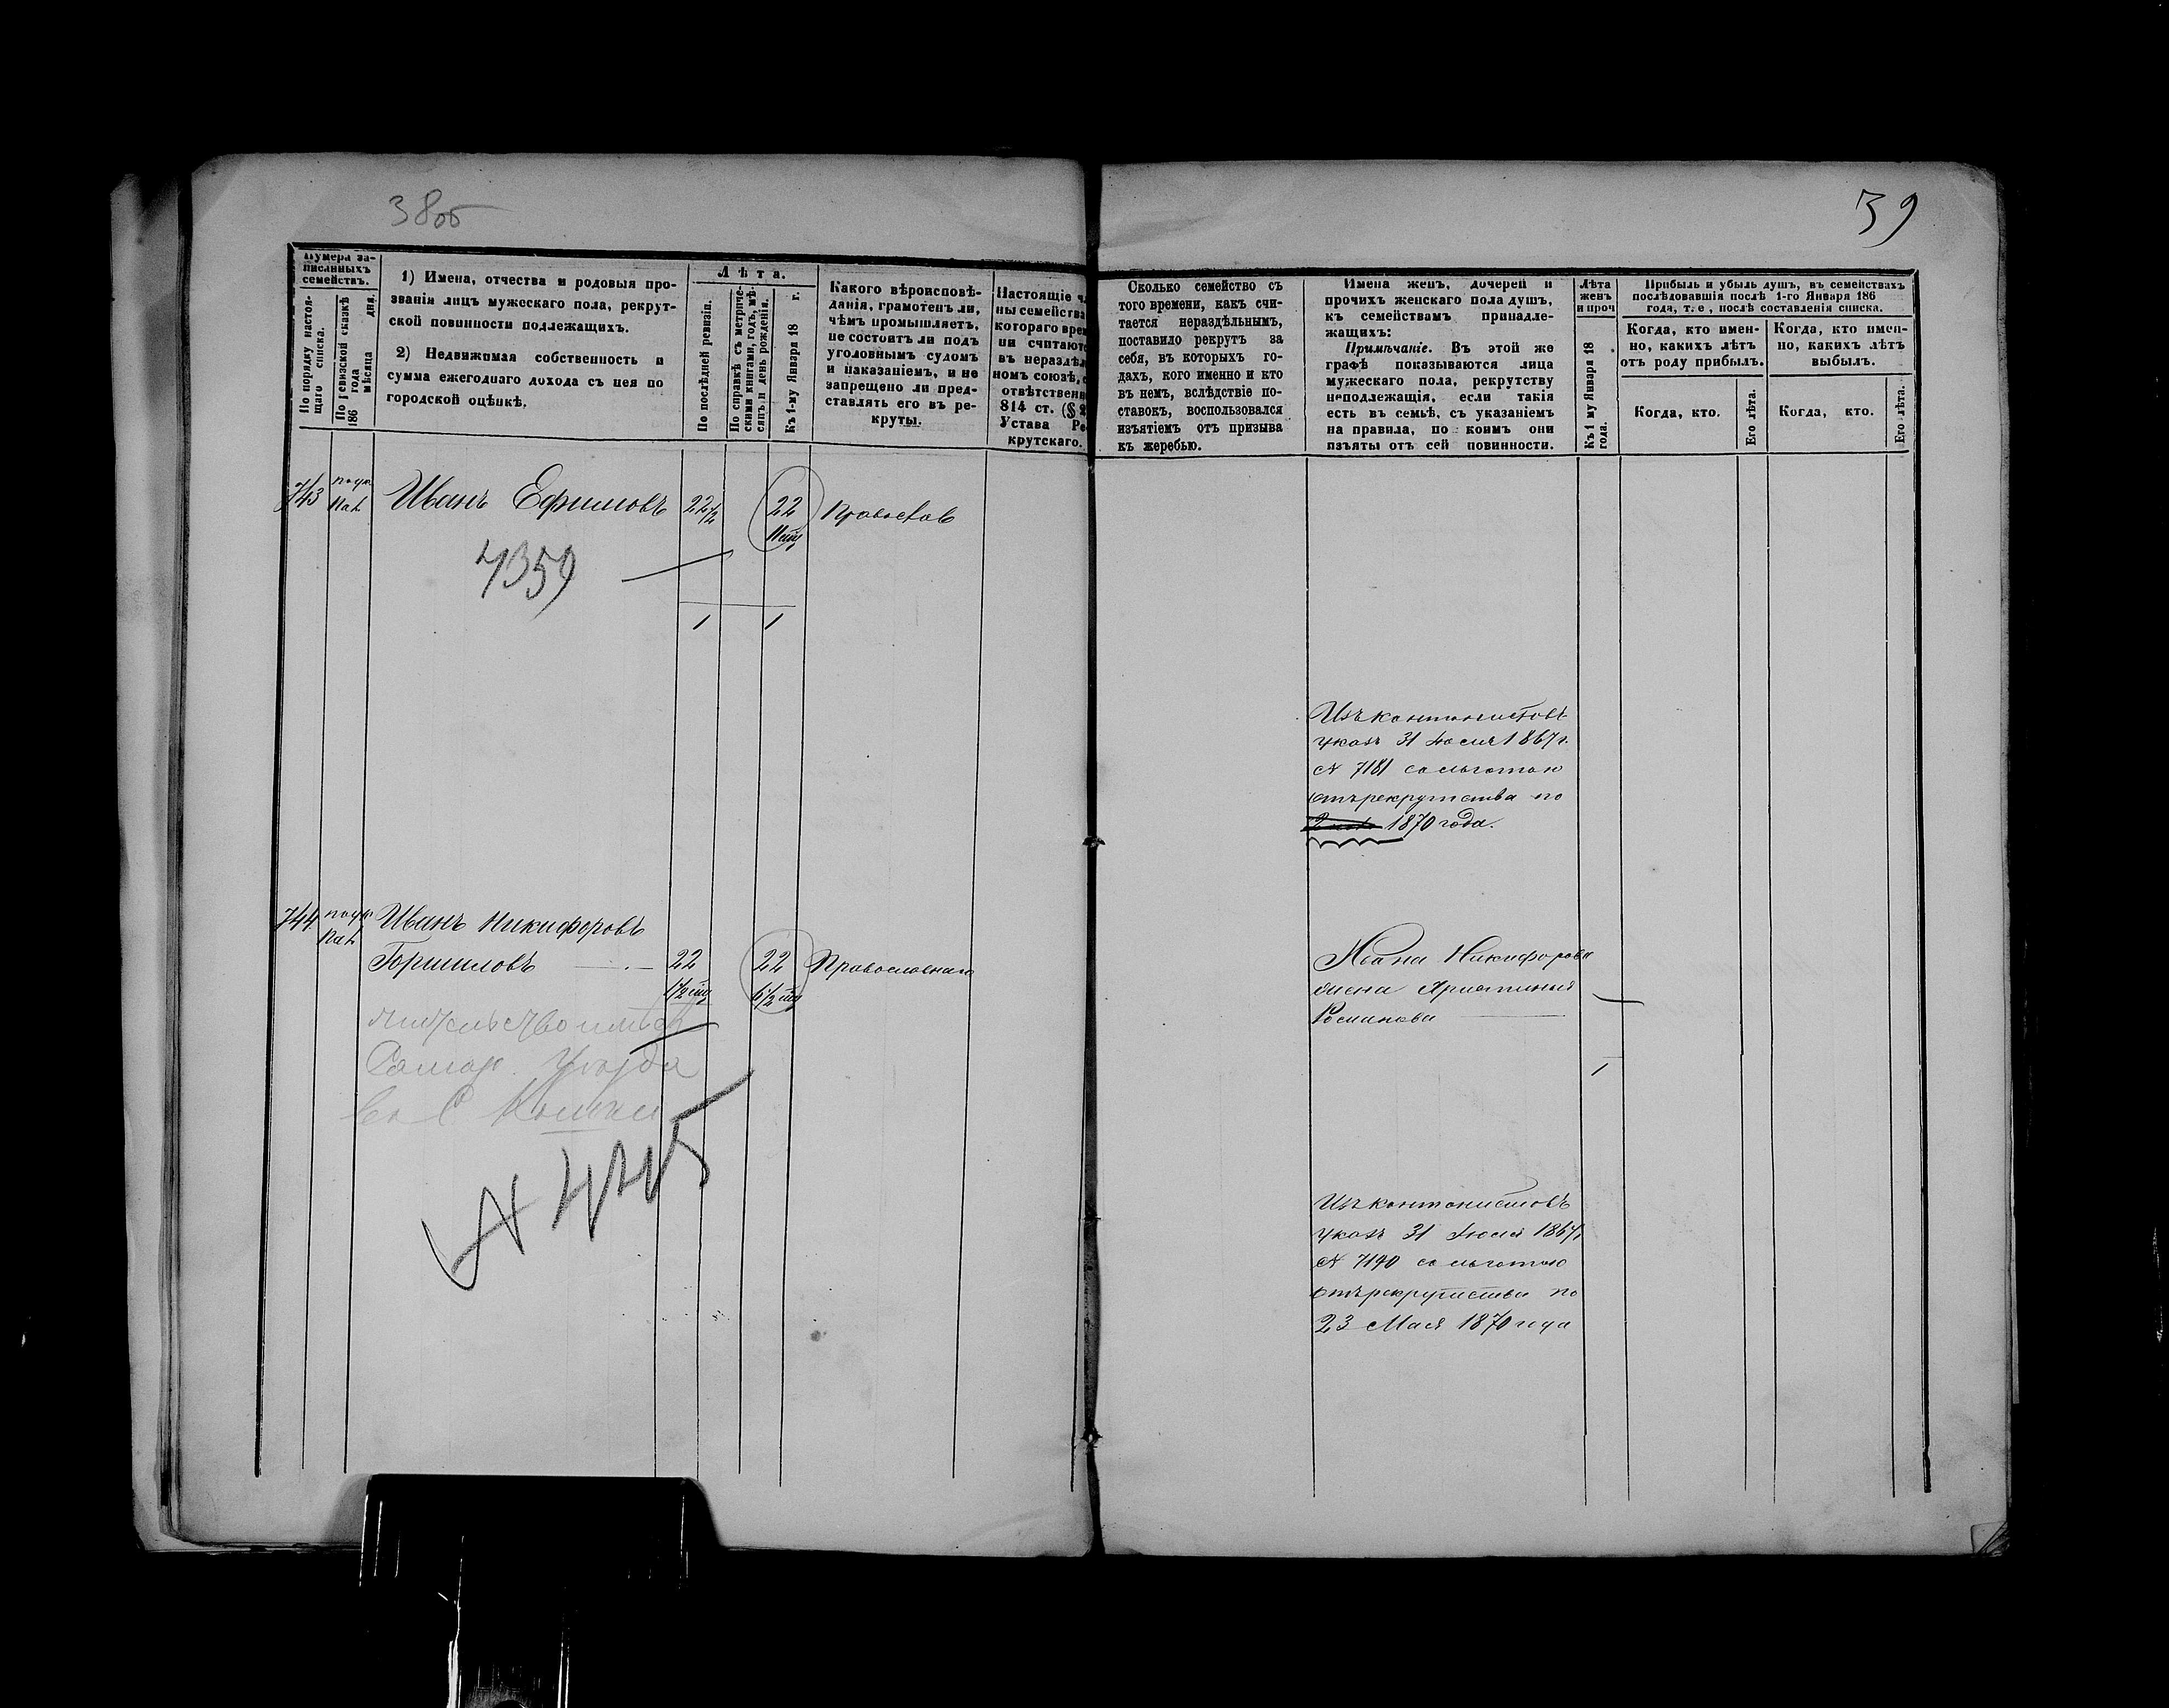 38об
39
Нумера за-
писанныхъ
семействъ.
По порядку настоя-
щаго списка.
По ревизской сказкѣ
186 года
мѣсяца дня.
1) Имена, отчества и родовыя про-
званія лицъ мужескаго пола, рекрут-
ской повинности подлежащихъ.
2) Недвижимая собственность и
сумма ежегоднаго дохода съ нея по
городской оцѣнкѣ.
Лѣта.
По послѣдней ревизіи.
По справкѣ съ метриче-
скими книгами, годъ, мѣ-
сяцъ и день рожденія.
Къ 1-му Января 18 г.
Какого вѣроисповѣ-
данія, грамотенъ ли,
чѣмъ промышляетъ,
не состоитъ ли подъ
уголовнымъ судомъ
и наказаніемъ, и не
запрещено ли пред-
ставлять его въ ре-
круты.
Настоящіе ч
ны семейства
котораго вре
ни считаютс
въ нераздѣл
номъ союзѣ, с
отвѣтственн
814 ст. (§ 2
Устава Ре
крутскаго.
Сколько семейство съ
того времени, какъ счи-
тается нераздѣльнымъ,
поставило рекрутъ за
себя, въ которыхъ го-
дахъ, кого именно и кто
въ немъ, вслѣдствіе по-
ставокъ, воспользовался
изъятіемъ отъ призыва
къ жеребью.
Имена женъ, дочерей и
прочихъ женскаго пола душъ,
къ семействамъ принадле-
жащихъ:
Примѣчаніе. Въ этой же
графѣ показываются лица
мужескаго пола, рекрутству
неподлежащія, если такія
есть въ семьѣ, съ указаніемъ
на правила, по коимъ они
изъяты отъ сей повинности.
Лѣта
женъ
и проч
Къ 1 му Января 18
года.
Прибыль и убыль душъ, въ семействахъ
послѣдовавшія послѣ 1-го Января 186
года, т. е, послѣ составленія списка.
Когда, кто имен-
но, какихъ лѣтъ
отъ роду прибылъ.
Когда, кто имен-
но, какихъ лѣтъ
выбылъ.
Когда, кто.
Его лѣта.
Когда, кто.
Его лѣта.
743 Иванъ Ефимовъ 22 1/2 22 Православ
4359
1 1
Изъ кантонистовъ
указъ 31 Іюля 1867 г.
№ 7181 со льготою
отъ рекрутства по
1870 года.
744 Иванъ Никифоровъ
Горшиловъ 22 22 Православнаго
1/2 6 1/2
жительство имѣетъ
Самар. Уѣзда
въ С Кошки
№ 4415
Ивана Никифорова
жена
Романова
1
Изъ кантонистовъ
указъ 31 Іюля 1867 г.
№ 7190 со льготою
отъ рекрутства по
23 Мая 1870 года